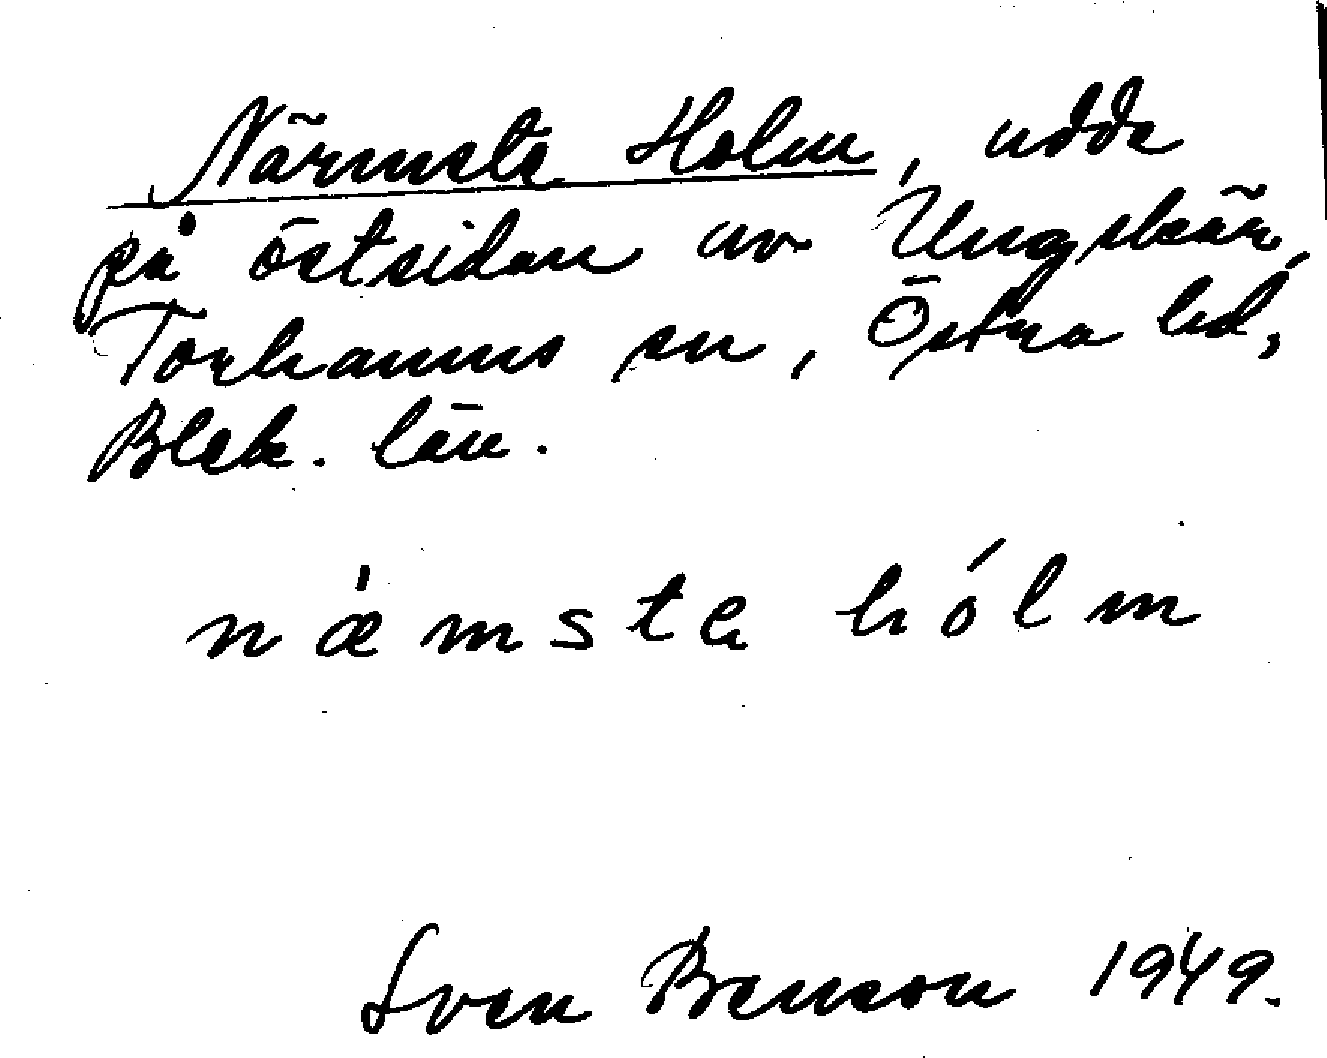 Närmsta Holm, udde
på östsidan av Ungskär,
Torhamns sn, Östra hd,
Blek. län.
næ̀msta hólm
Sven Benson 1949.